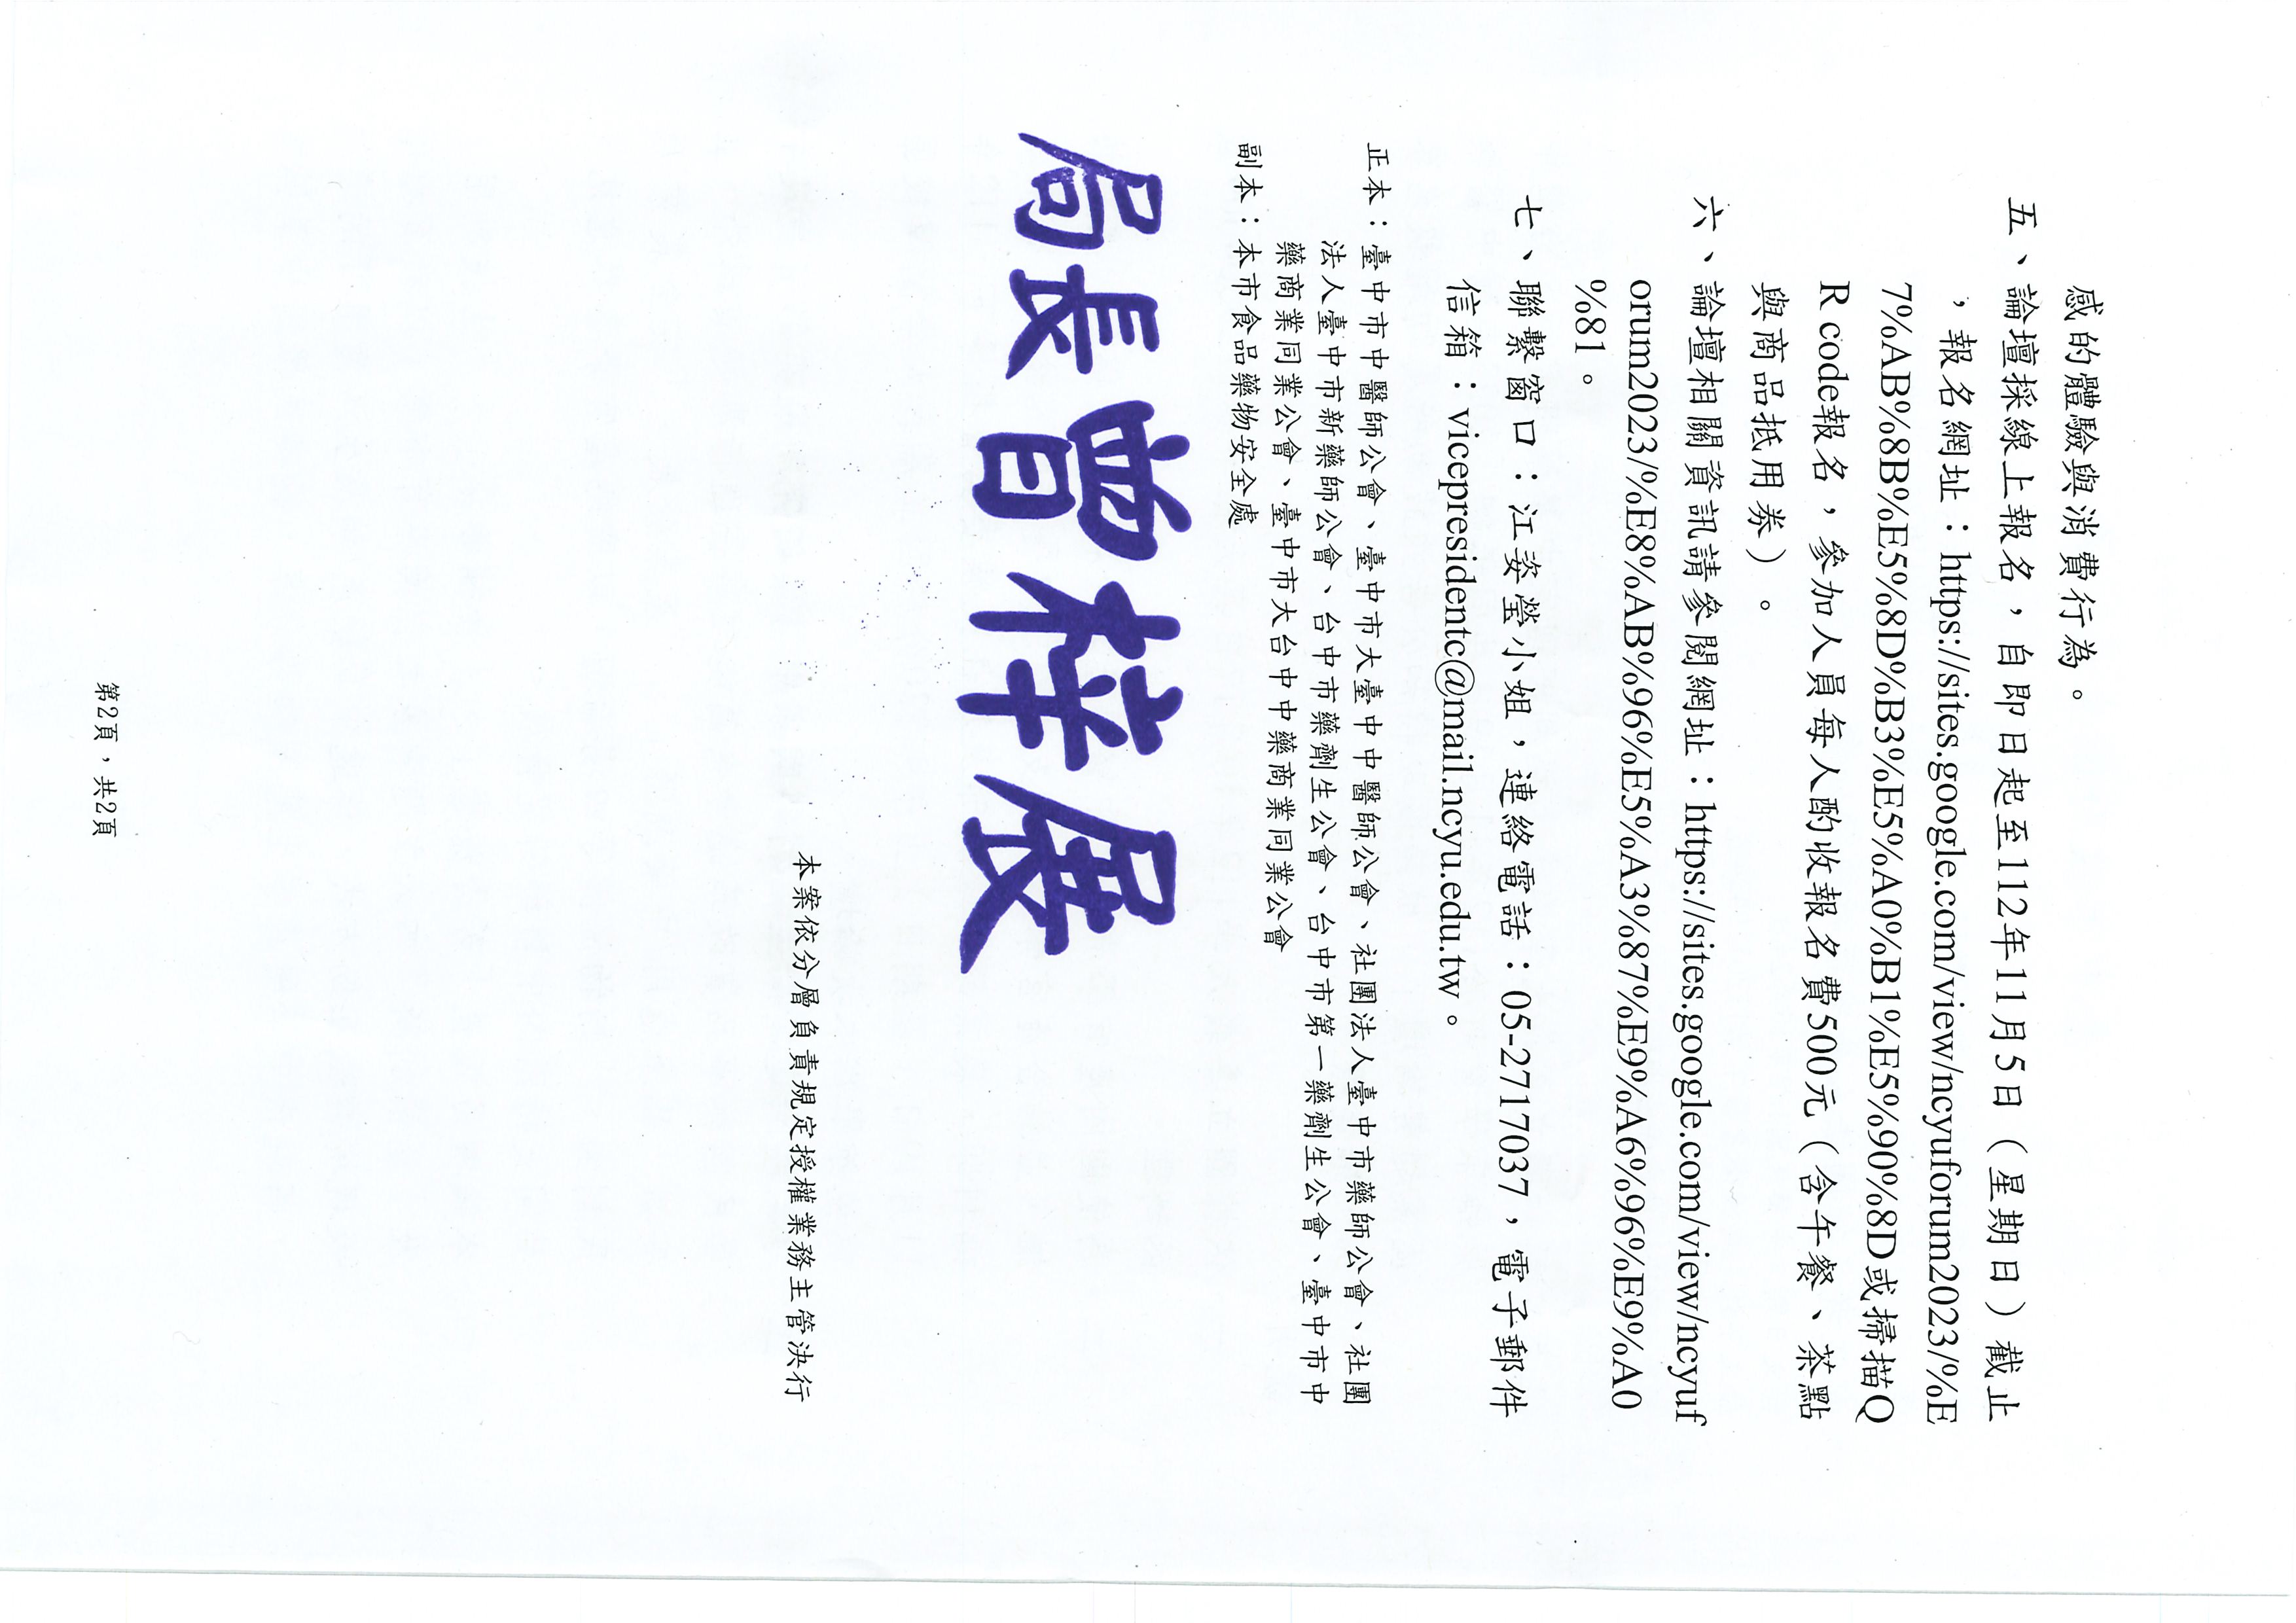 感的體驗與消費行為。
五、論壇採線上報名，自即日起至112年11月5日（星期日）截止
，報名網址：https://sites.google.com/view/ncyuforum2023/%E
7%AB%8B%E5%8D%B3%E5%A0%B1%E5%90%8D或掃描Q
R code報名，參加人員每人酌收報名費500元（含午餐、茶點
與商品抵用券）。
六、論壇相關資訊請參閱網址：https://sites.google.com/view/ncyuf
orum2023/%E8%AB%96%E5%A3%87%E9%A6%96%E9%A0
%81。
七、聯繫窗口：江姿瑩小姐，連絡電話：05-2717037，電子郵件
信箱：vicepresidentc@mail.ncyu.edu.tw。
正本：臺中市中醫師公會、臺中市大臺中中醫師公會、社團法人臺中市藥師公會、社團
法人臺中市新藥師公會、台中市藥劑生公會、台中市第一藥劑生公會、臺中市中
藥商業同業公會、臺中市大台中中藥商業同業公會
副本：本市食品藥物安全處
局長曾梓展
本案依分層負責規定授權業務主管決行
第2頁，共2頁